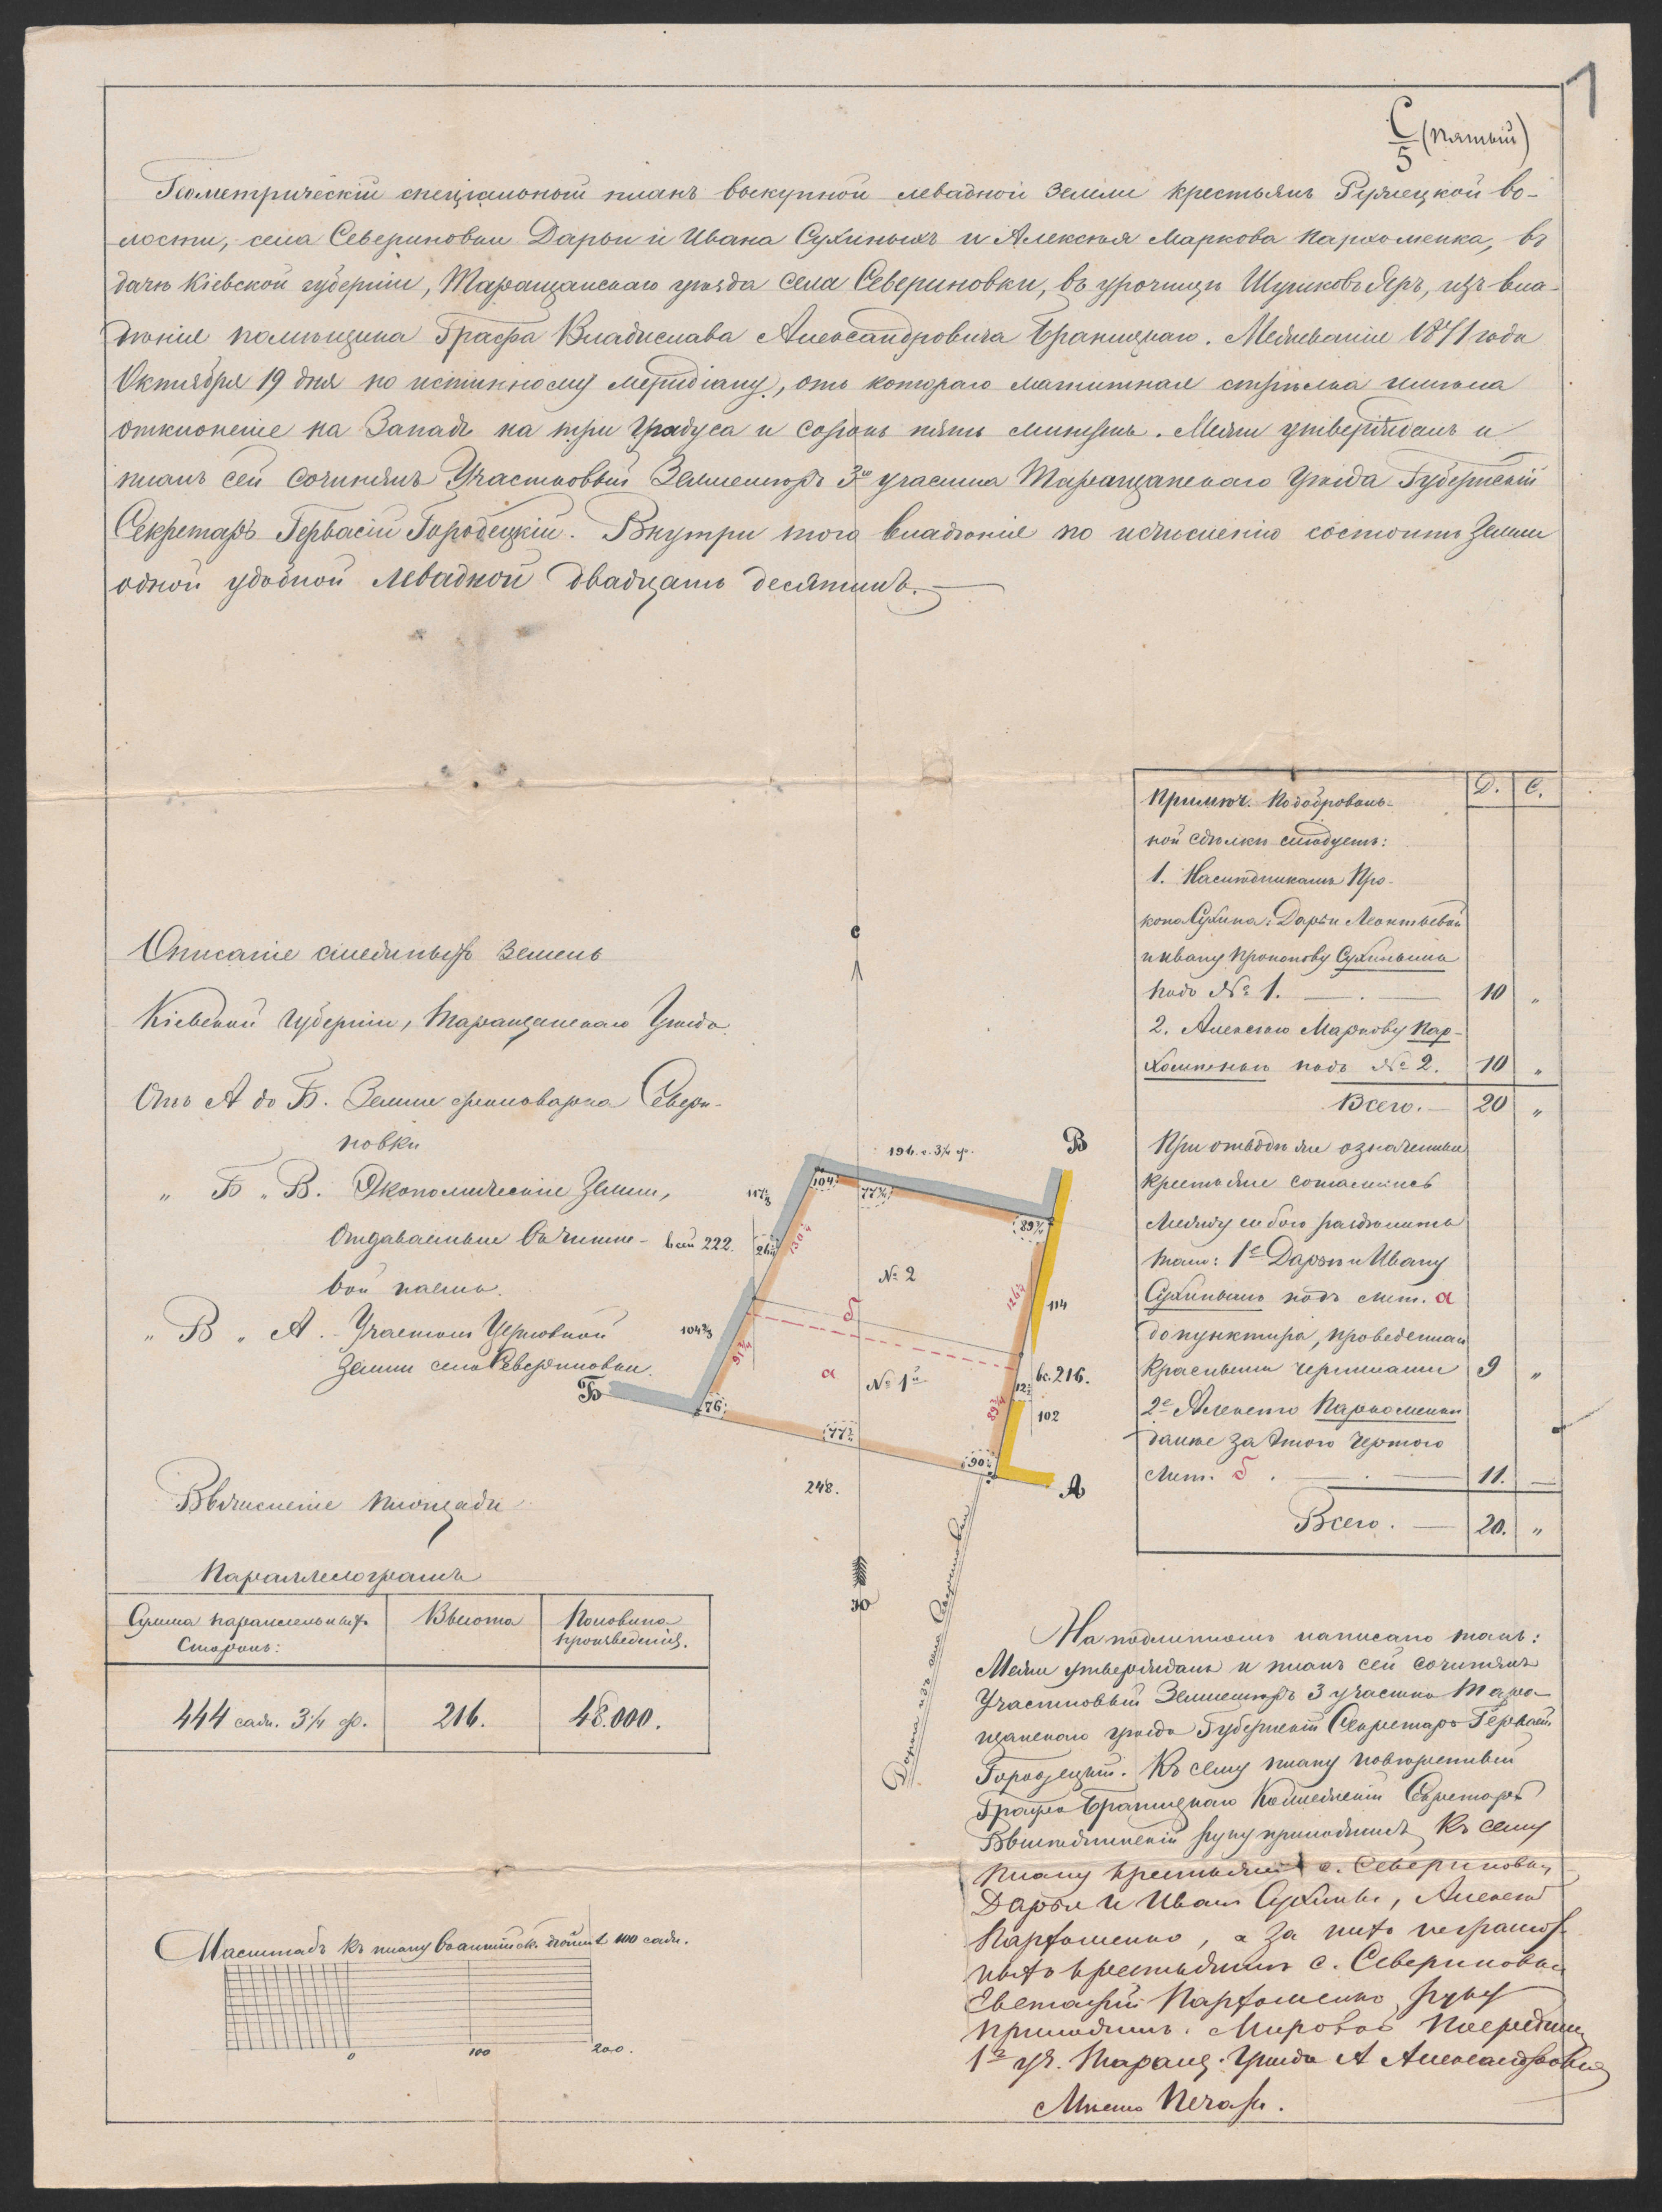 1
С/5 (пятый)
Геометрическій спеціальный планъ выкупной левадной земли крестьянъ во-
лости, села Севериновки Дарьи и Ивана Сухиныхъ и Алексѣя Маркова Пархоменка, въ
дачѣ Кіевской губерніи, Таращанскаго уѣзда села Севериновки, въ урочищѣ Яръ, изъ вла-
дѣнія помѣщика Графа Владислава Александровича Браницкаго. Межеваніе 1871 года
Октября 19 дня по истинному меридіану, отъ котораго магнитная стрѣлка имѣла
отклоненіе на Западъ на три градуса и сорокъ пять минутъ. Межи утверждалъ и
планъ сей сочинялъ Участковый Землемѣръ 3го участка Таращанскаго Уѣзда Губернскій
Секретарь Гервасій Городецкій. Внутри того владѣнія по исчисленію состоитъ земли
одной удобной левадной двадцать десятинъ.
Примѣч. По добровол-
ной сдѣлкѣ слѣдуетъ:
1. Наслѣдникамъ Про-
копа Сухина: Дарьи Леонтьевой
и Ивану Прокопову Сухинымъ
подъ № 1. 10 „
2. Алексѣю Маркову Пар-
хоменку подъ № 2. 10 „
Всего. 20 „
Д. С.
При отводѣ же означенные
крестьяне согласились
между собою раздѣлить
такъ: 1е Дарьи и Ивану
Сухинымъ подъ лит. а
до пунктира, проведенаго
красными чернилами 9 „
2е Алексѣю Пархоменку
также за этою чертою
лит. б. 11. —
Всего. 20. „
Описаніе смежныхъ земель
Кіевской Губерніи, Таращанскаго Уѣзда.
Отъ А до Б. Земли фольварка Севери-
новки
„ Б „ В. Экономическіе земли,
отдаваемые въ чинше-
вой наемъ.
„ В „ А. Участокъ Церковной
земли села Севериновки.
С
196 с. 3¼ ф.
В
104
77¼
89¾
117⅓
всѣй 222.
26½
130¼
№ 2
126¼
114
б
104⅔
91¾
а
№ 1й
вс. 216.
12½
89¾
102
Б
76
77½
90¼
А
248.
Ю
Дорога изъ села Севериновки
Вычисленіе площади
Параллелограмъ
Сумма параллельныхъ
Сторонъ:
Высота
Половина
произведенія.
444 саж. 3¼ ф.
216.
48.000.
Масштабъ къ плану въ англійск. дюймѣ 100 саж.
0 100 200.
На подлинномъ написано такъ:
Межи утверждалъ и планъ сей сочинялъ
Участковый Землемѣръ 3 участка Тара-
щанскаго уѣзда Губернскій Секретарь Гервасій
Городецкій. Къ сему плану повѣренный
Графа Браницкаго Коллежскій Секретарь
руку приложилъ. Къ сему
плану крестьяне с. Севериновки
Дарья и Иванъ Сухины, Алексѣй
Пархоменко, а за нихъ неграмот-
ныхъ крестьянинъ с. Севериновки
Евстафій Пархоменко руку
приложилъ. Мировой Посредникъ
1го уч. Таращ. Уѣзда А
Мѣсто Печати.